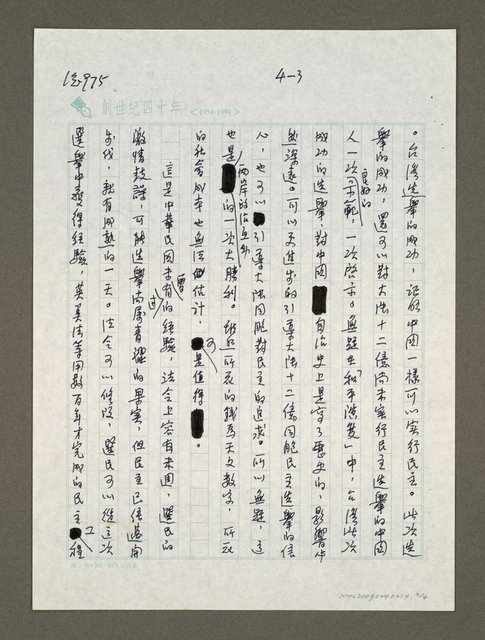 1至975
4-3
創世紀四十年
<1954-1994>
。台灣選舉的成功,証明中國一樣可以實行民主。此次選
舉的成功,還可以對大陸十二億尚未實行民主選舉的中國
人一次良好的示範,一次啓示。無疑在「和平演變」中,台灣此次
成功的選舉對中國自治史上是寫了歷史的,影響
深遠。可以更進步的引導大陸十二億同胞民主選舉的信
心,也可以引導大陸同胞對民主的追求。所以無疑,這
也是兩岸政治互動的一次大勝利。縱然所花的錢為天文數字,所花
的社會成本也無法估計,可是值得。
這是中華民國未曾有過的經驗,法令上容有未週,選民的
激情鼓譟,可能造舉尚屬青澀的果實,但民主已經邁開
步伐,就有成熟的一天。法令可以修改,選民可以從這次
選舉中獲得經驗,英美法等用數百年才完成的民主工程